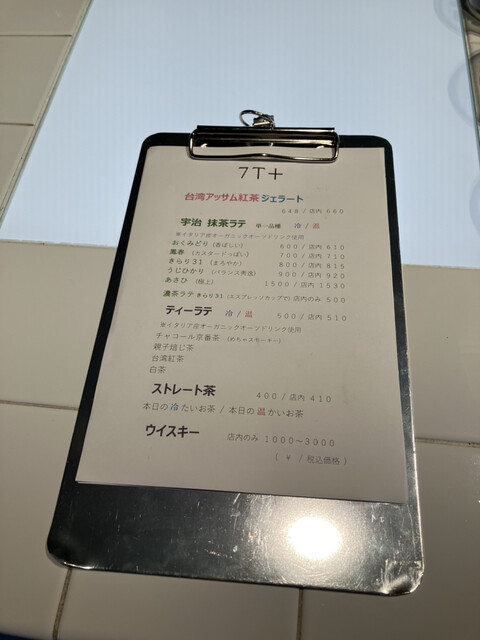 7T+
台湾アッサム紅茶 ジェラート
648 / 店内 660
宇治 抹茶ラテ 単一品種 冷 / 温
※イタリア産オーガニックオーツドリンク使用
おくみどり (香ばしい) 600 / 店内 610
鳳春 (カスタードっぽい) 700 / 店内 710
きらり31 (まろやか) 800 / 店内 815
うじひかり (バランス秀逸) 900 / 店内 920
あさひ (極上) 1500 / 店内 1530
濃茶ラテ きらり31 (エスプレッソカップや) 店内のみ 500
ティーラテ 冷 / 温 500 / 店内 510
※イタリア産オーガニックオーツドリンク使用
チャコール京番茶 (めちゃスモーキー)
親子焙じ茶
台湾紅茶
白茶
ストレート茶 400 / 店内 410
本日の冷たいお茶 / 本日の温かいお茶
ウイスキー 店内のみ 1000〜3000
( ¥ / 税込価格 )